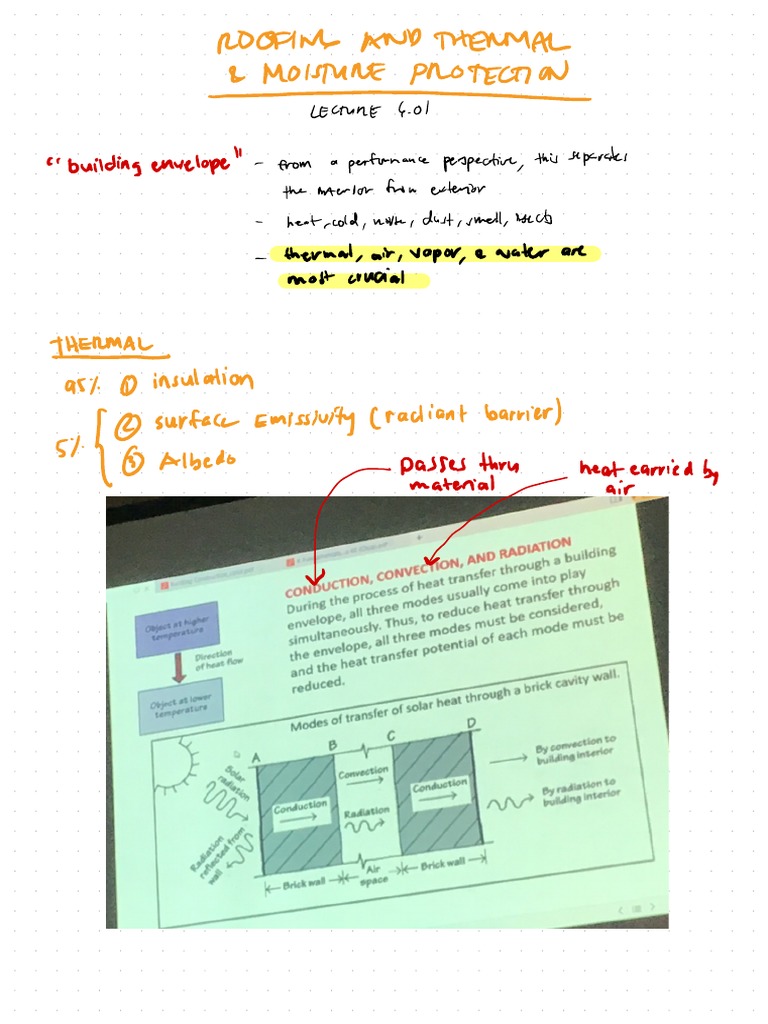 ROOFING AND THERMAL
& MOISTURE PROTECTION
LECTURE 6.01
"building envelope"
- from a performance perspective, this separates
the interior from exterior
- heat, cold, noise, dust, smell, insects
- thermal, air, vapor, & water are
most crucial
THERMAL
95% ① insulation
5% ② surface Emissivity (radiant barrier)
③ Albedo
passes thru
material
heat carried by
air
CONDUCTION, CONVECTION, AND RADIATION
During the process of heat transfer through a building
envelope, all three modes usually come into play
simultaneously. Thus, to reduce heat transfer through
the envelope, all three modes must be considered,
and the heat transfer potential of each mode must be
reduced.
Object at higher
temperature
Direction
of heat flow
Object at lower
temperature
Modes of transfer of solar heat through a brick cavity wall.
A
B
C
D
Solar
radiation
Radiation
reflected from
wall
Conduction
Convection
Radiation
Conduction
By convection to
building interior
By radiation to
building interior
Brick wall
Air
space
Brick wall